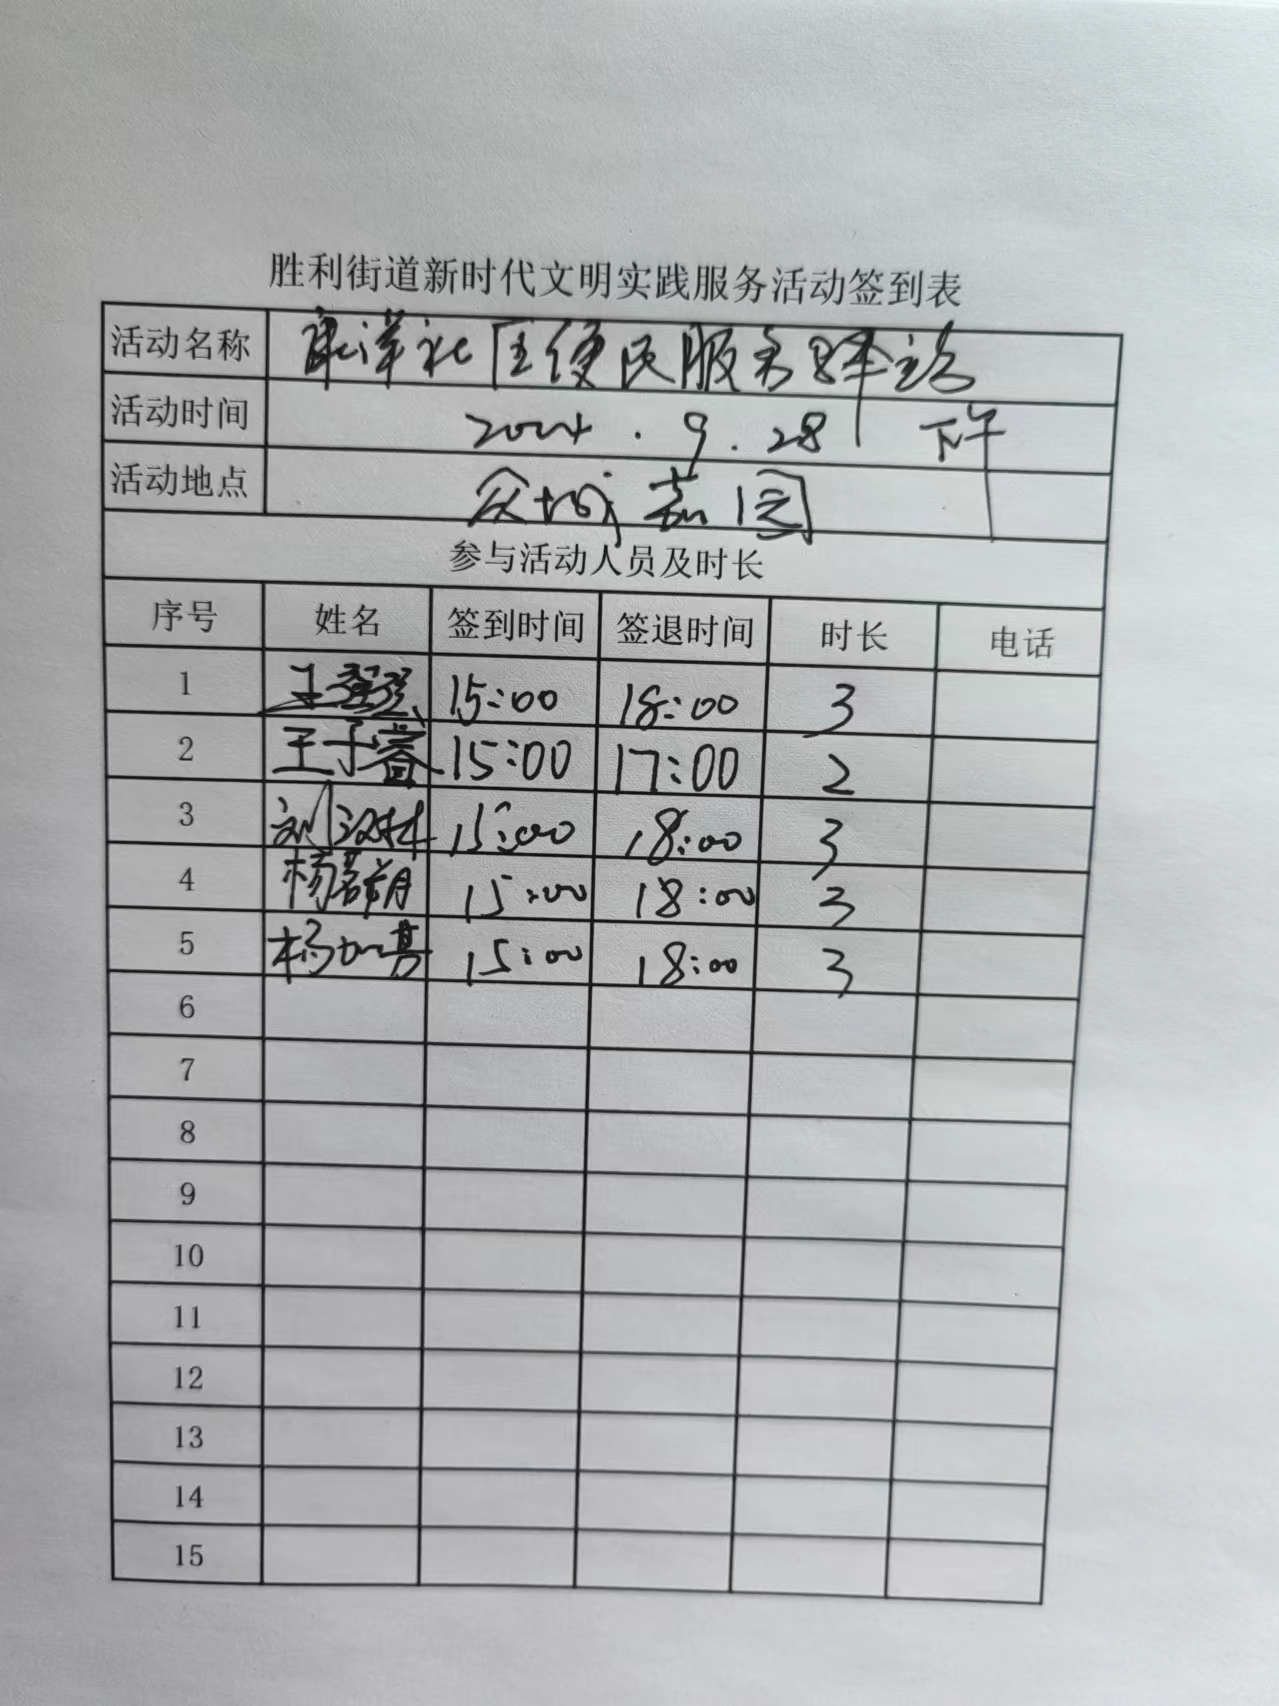 胜利街道新时代文明实践服务活动签到表
活动名称 康洋社区便民服务驿站
活动时间 2024.9.28 下午
活动地点 众城嘉园
参与活动人员及时长
序号 姓名 签到时间 签退时间 时长 电话
1 王 15:00 18:00 3
2 王子睿 15:00 17:00 2
3 刘汉林 15:00 18:00 3
4 杨 15:00 18:00 3
5 杨加勇 15:00 18:00 3
6
7
8
9
10
11
12
13
14
15